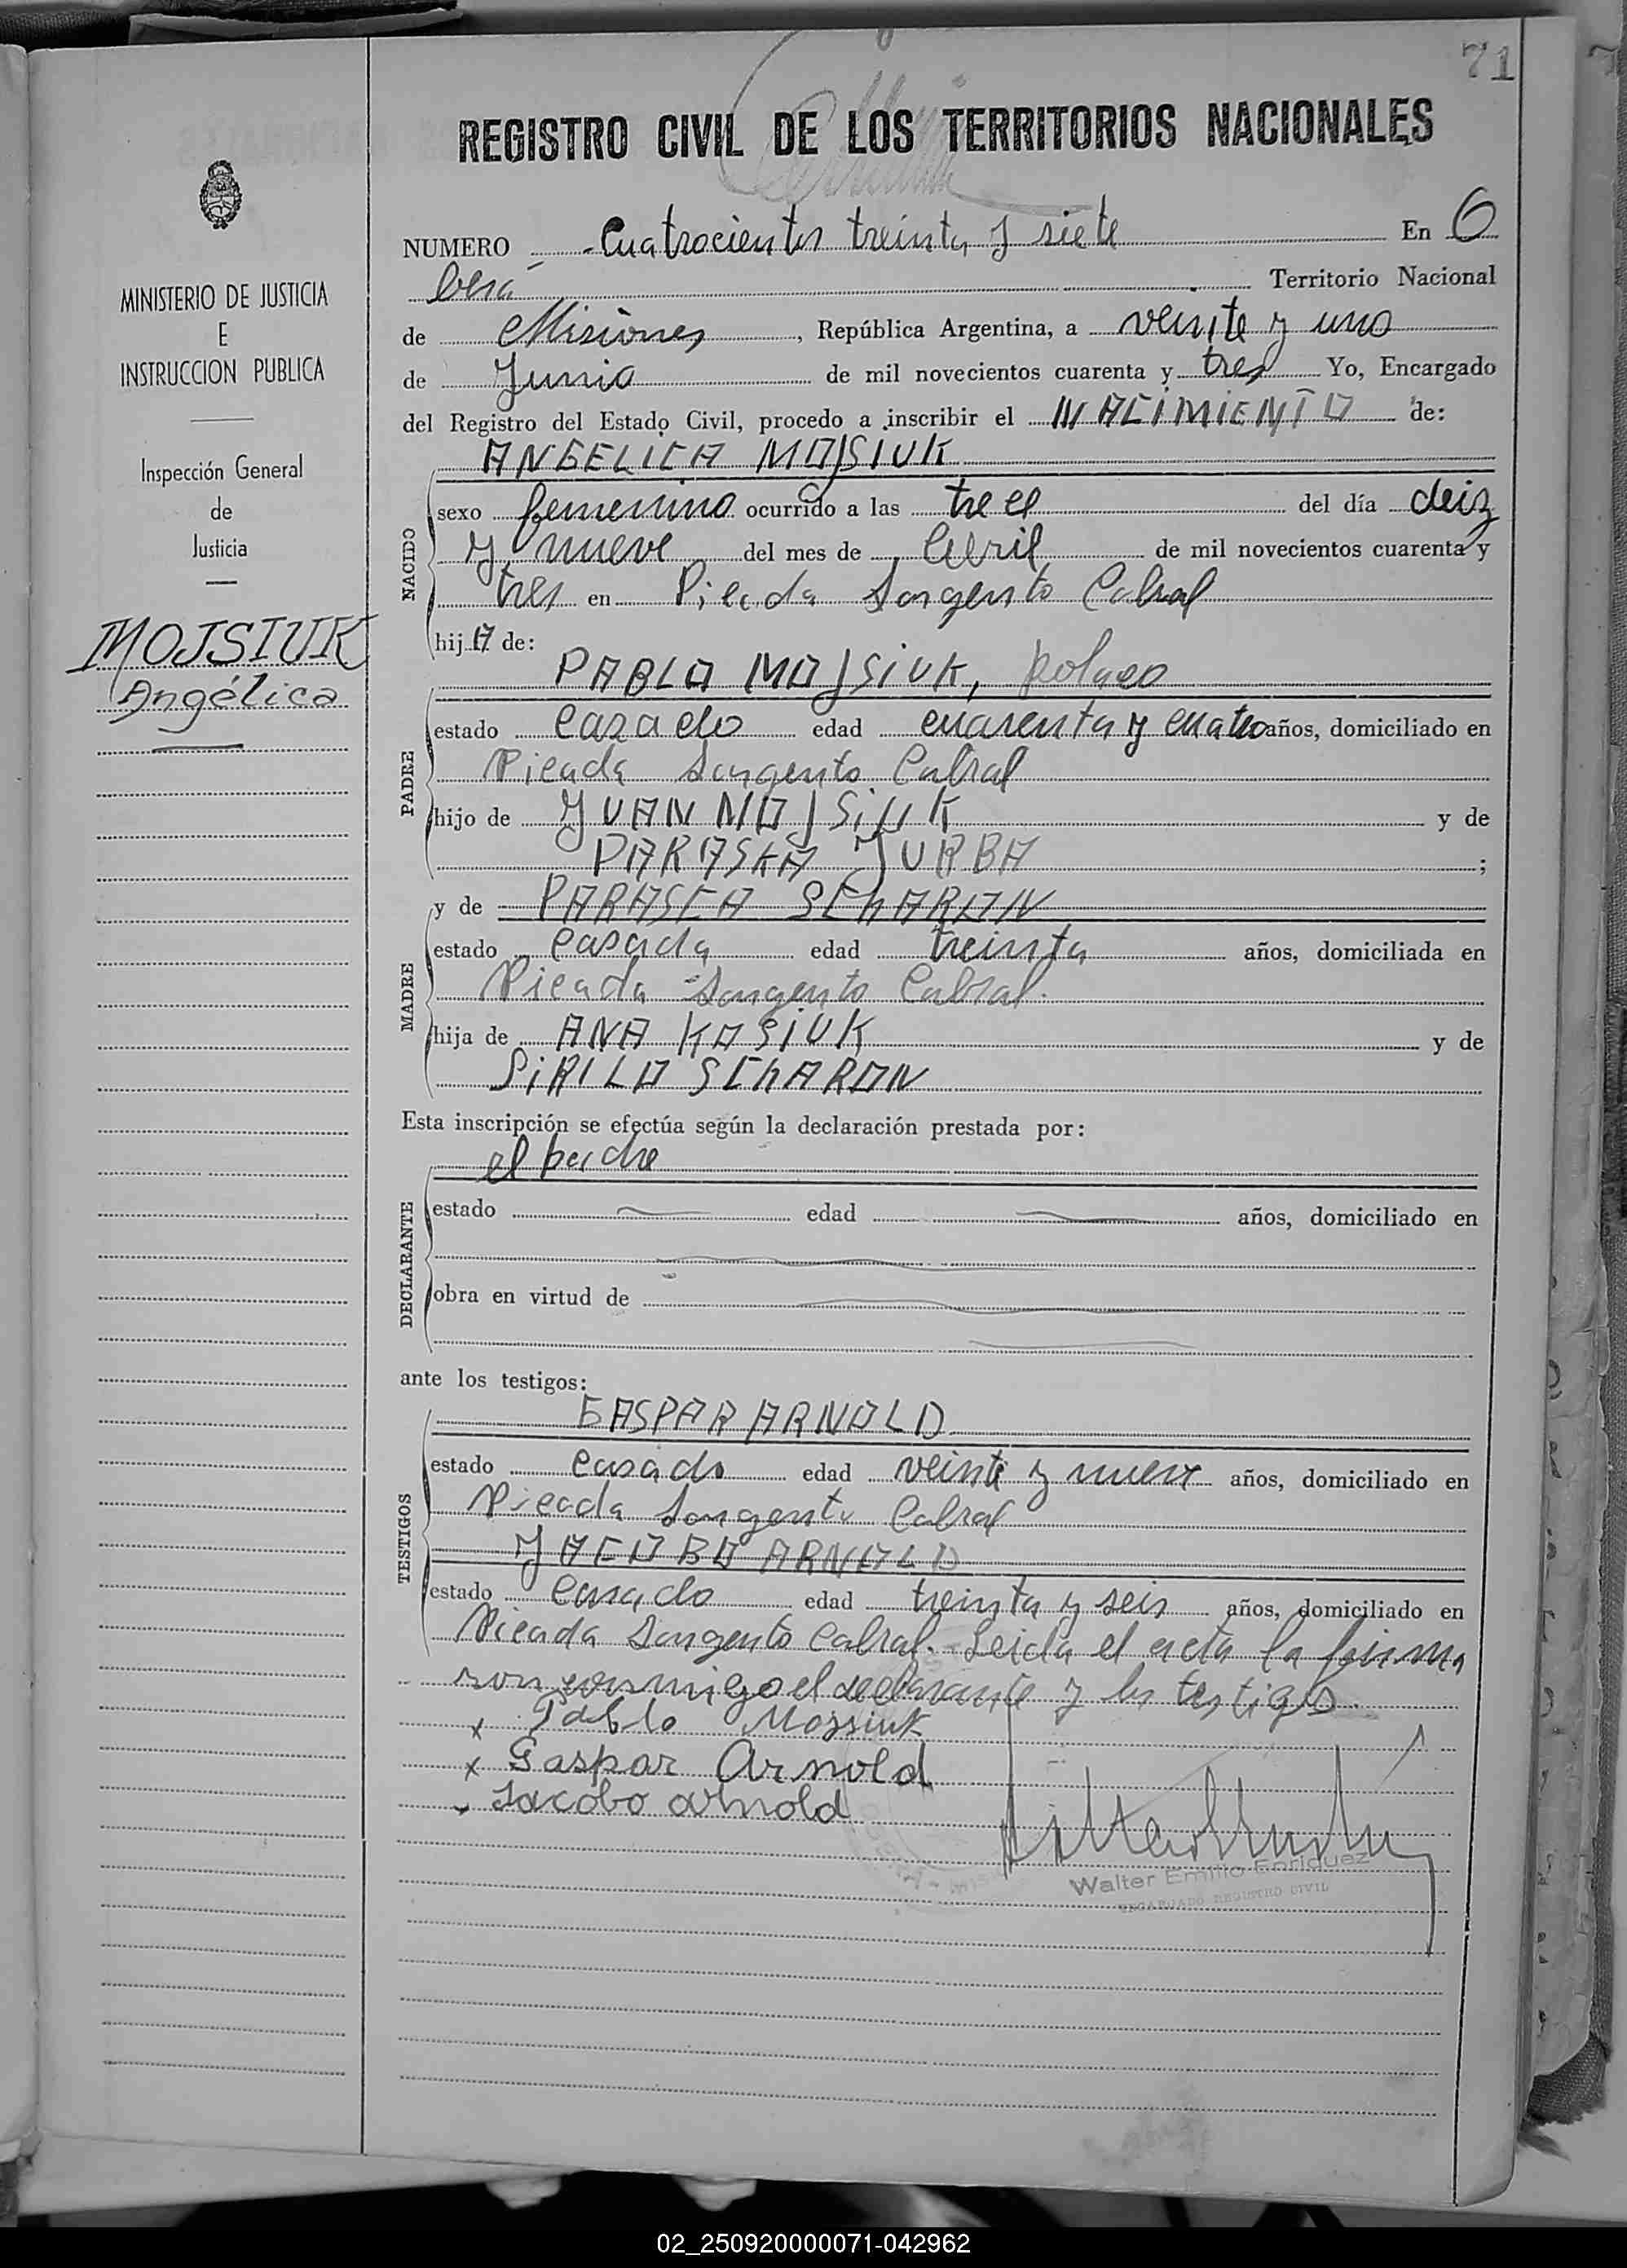 71
REGISTRO CIVIL DE LOS TERRITORIOS NACIONALES
NUMERO Cuatrocientos treinta y siete En O
berá Territorio Nacional
de Misiones, República Argentina, a veinte y uno
de Junio de mil novecientos cuarenta y tres Yo, Encargado
del Registro del Estado Civil, procedo a inscribir el NACIMIENTO de:
ANGELICA MOJSIUK
NACIDO
sexo femenino ocurrido a las trece del día deiz
y nueve del mes de Abril de mil novecientos cuarenta y
tres en Picada Sargento Cabral
hija de:
PABLO MOJSIUK, polaco
PADRE
estado casado edad cuarenta y cuatro años, domiciliado en
Picada Sargento Cabral
hijo de JUAN MOJSIUK y de
PARASKA JURBA ;
y de PARASCA SCHARON
MADRE
estado casada edad treinta años, domiciliada en
Picada Sargento Cabral.
hija de ANA KOSIUK y de
SIRILO SCHARON
Esta inscripción se efectúa según la declaración prestada por:
el padre
DECLARANTE
estado edad años, domiciliado en
obra en virtud de
ante los testigos:
GASPAR ARNOLD
TESTIGOS
estado casado edad veinte y nueve años, domiciliado en
Picada Sargento Cabral
JACOBO ARNOLD
estado casado edad treinta y seis años, domiciliado en
Picada Sargento Cabral. Leida el acta la firma
ron conmigo el declarante y los testigos.
x Pablo Mojsiuk
x Gaspar Arnold
Jacobo Arnold
Walter Emilio Enriquez
ENCARGADO REGISTRO CIVIL
MINISTERIO DE JUSTICIA
E
INSTRUCCION PUBLICA
Inspección General
de
Justicia
MOJSIUK
Angélica
02_250920000071-042962